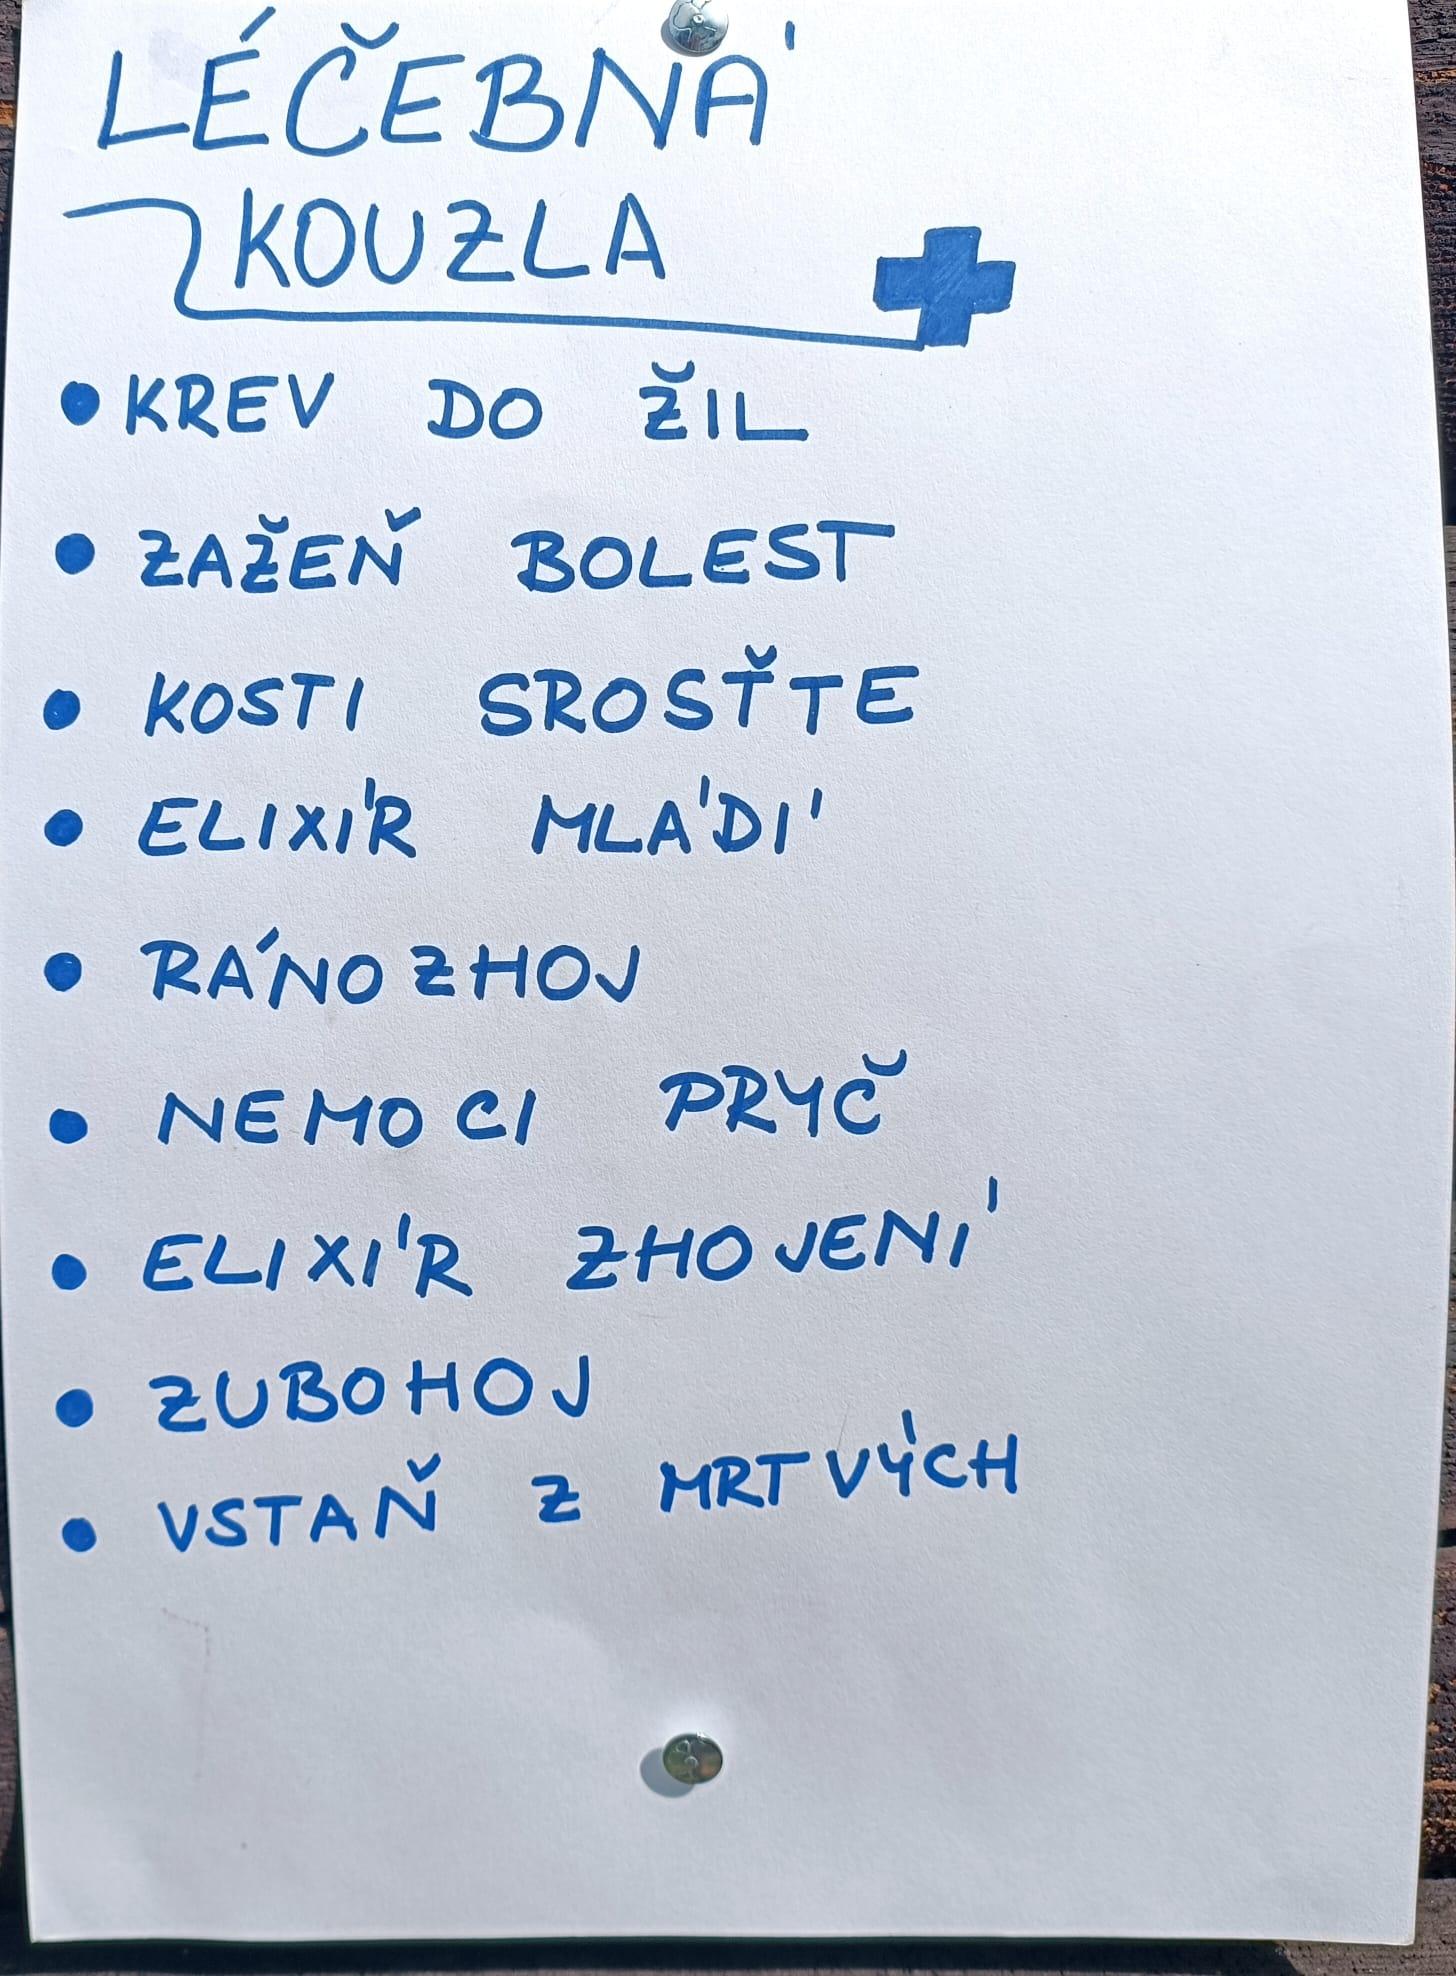 LÉČEBNÁ
KOUZLA
• KREV DO ŽIL
• ZAŽEŇ BOLEST
• KOSTI SROSŤTE
• ELIXÍR MLÁDÍ
• RÁNOZHOJ
• NEMOCI PRYČ
• ELIXÍR ZHOJENÍ
• ZUBOHOJ
• VSTAŇ Z MRTVÝCH